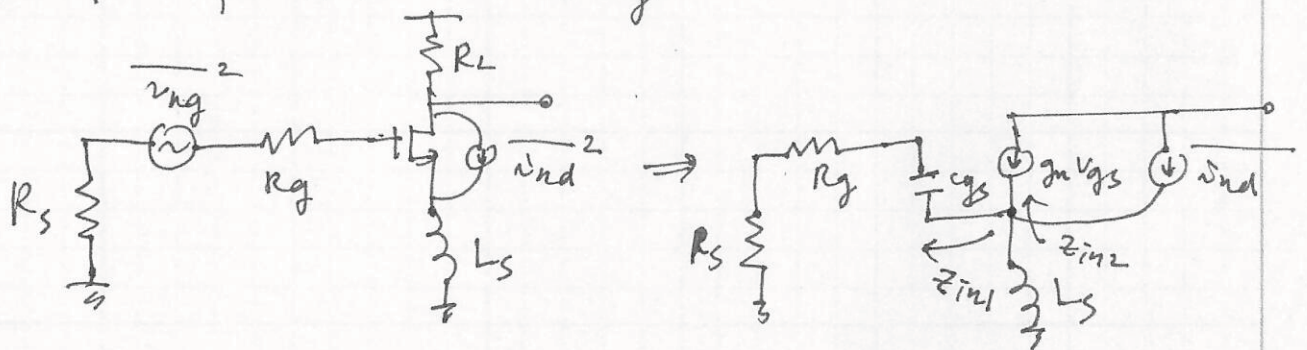 R_L
\overline{v_{ng}}^2
R_g
\overline{i_{nd}}^2
R_s
L_s
⇒
R_g
c_{gs}
g_m v_{gs}
\overline{i_{nd}}
R_s
Z_{in1}
Z_{in2}
L_s